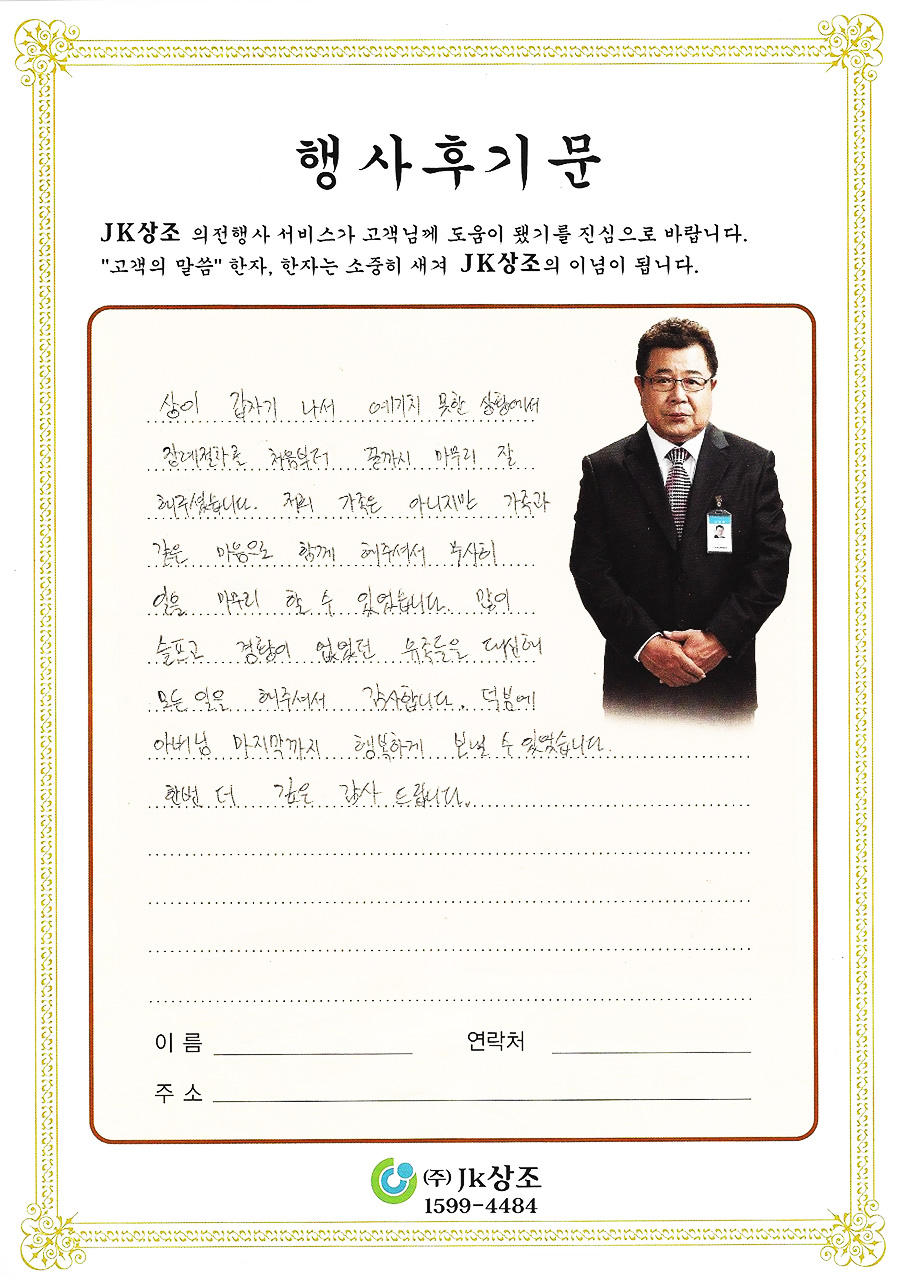 행사후기문
JK상조 의전행사 서비스가 고객님께 도움이 됐기를 진심으로 바랍니다.
"고객의 말씀" 한자, 한자는 소중히 새겨 JK상조의 이념이 됩니다.
상이 갑자기 나서 예기치 못한 상황에서
장례절차를 처음부터 끝까지 마무리 잘
해주셨습니다. 저희 가족은 아니지만 가족과
같은 마음으로 함께 해주셔서 무사히
일을 마무리 할 수 있었습니다. 많이
슬프고 경황이 없었던 유족들을 대신해
모든 일을 해주셔서 감사합니다. 덕분에
아버님 마지막까지 행복하게 보낼 수 있었습니다.
한번 더 깊은 감사 드립니다.
이 름 연락처
주 소
(주) Jk상조
1599-4484